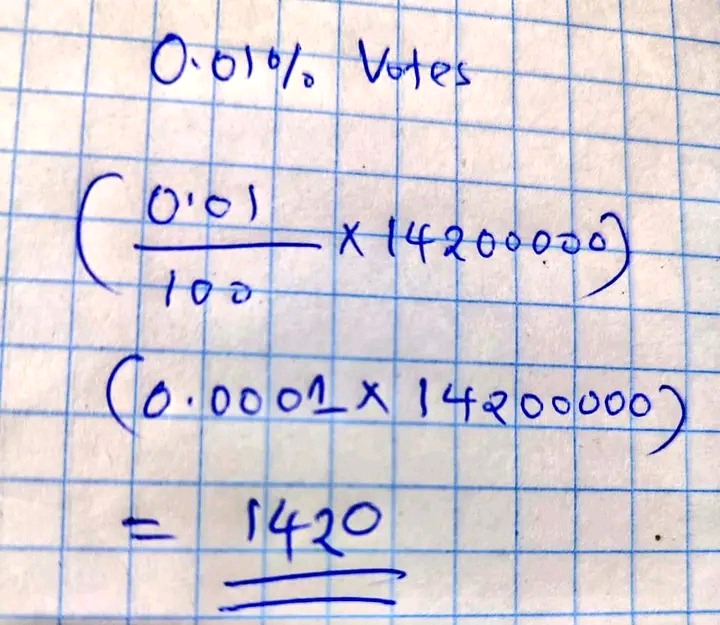 0.01% Votes
(0.01/100 × 14200000)
(0.0001 × 14200000)
= 1420